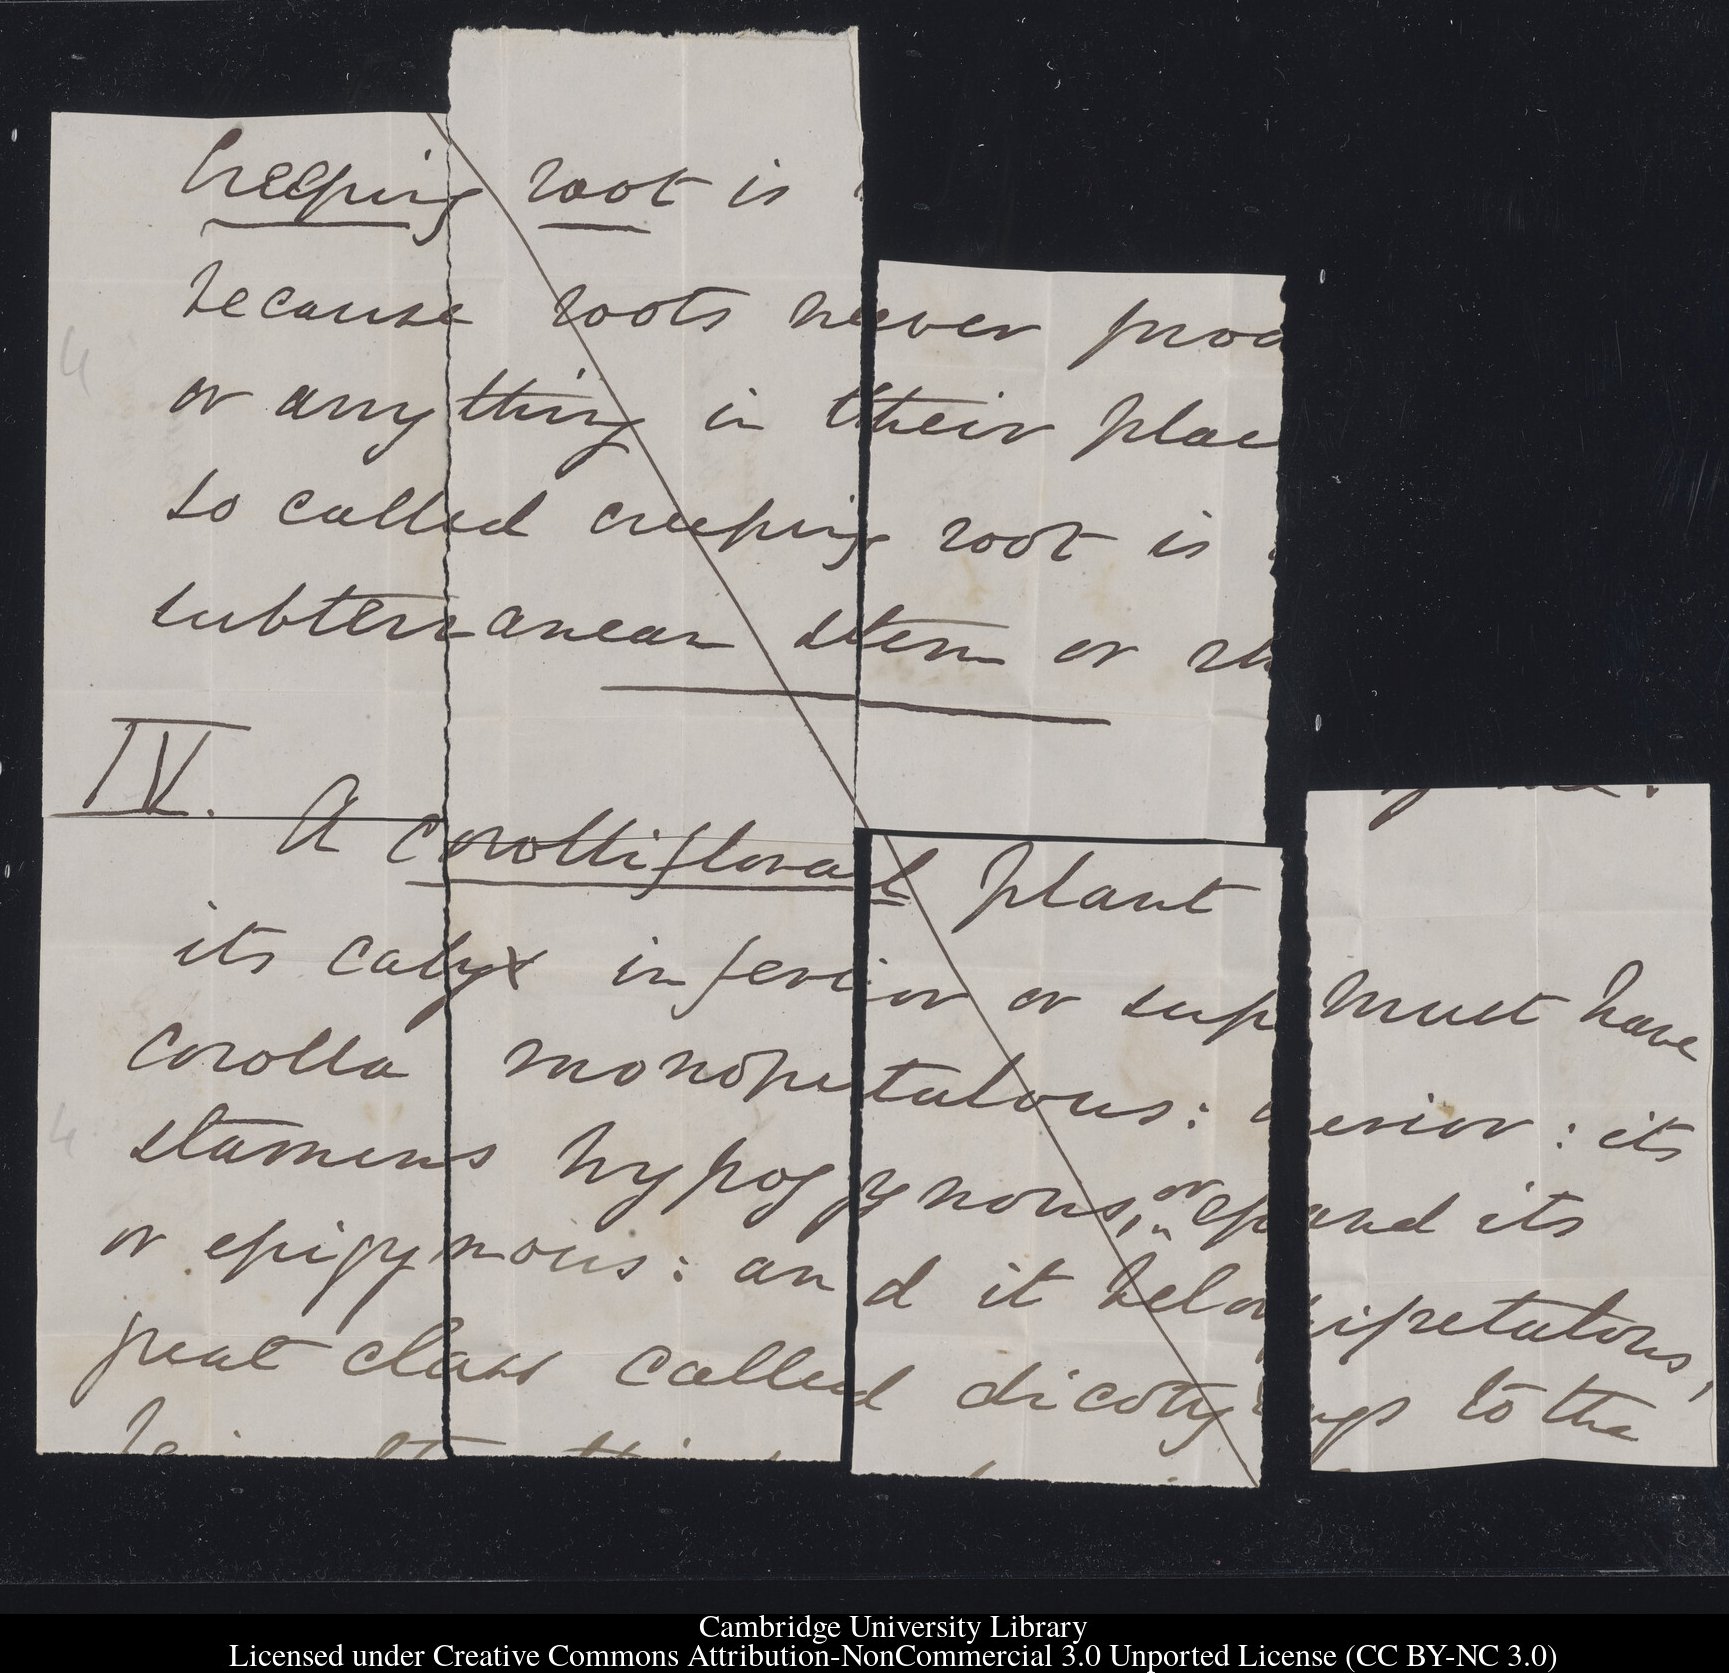 Creeping root is
because roots never prod
4
or anything in their plac
so called creeping root is
subterranean stem or rh
IV.
A corollifloral plant must have
its calyx inferior or superior : its
corolla monopetalous : and its
4
stamens hypogynous, or epipetalous,
or epigynous : and it belongs to the
great class called dicoty
Cambridge University Library
Licensed under Creative Commons Attribution-NonCommercial 3.0 Unported License (CC BY-NC 3.0)